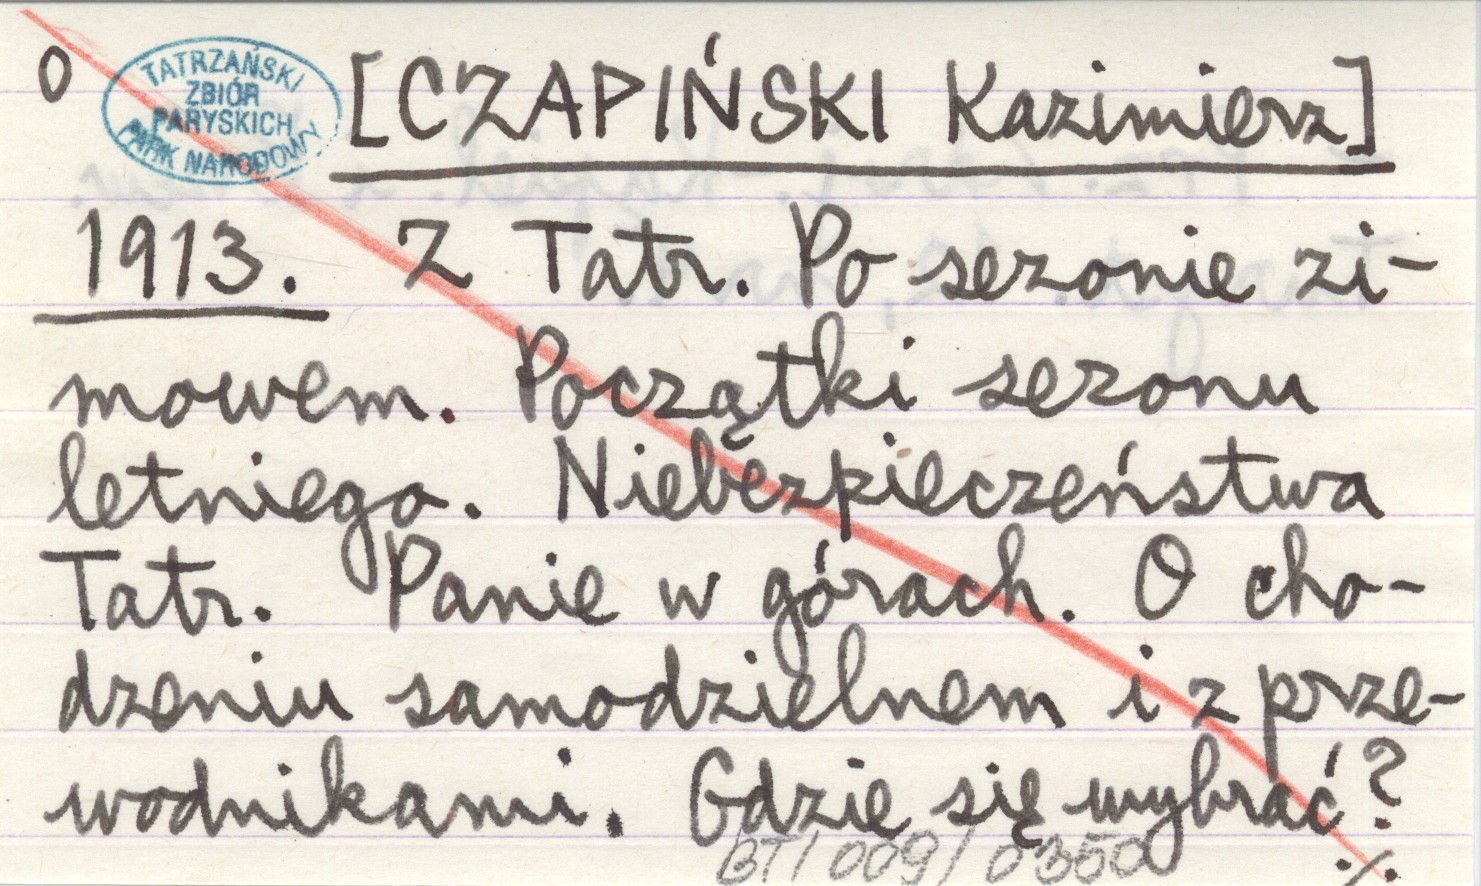 0
TATRZAŃSKI
ZBIÓR
PARYSKICH
PARK NARODOWY
[CZAPIŃSKI Kazimierz]
1913. Z Tatr. Po sezonie zi-
mowem. Początki sezonu
letniego. Niebezpieczeństwa
Tatr. Panie w górach. O cho-
dzeniu samodzielnem i z prze-
wodnikami. Gdzie się wybrać?
BT/009/0350
./.